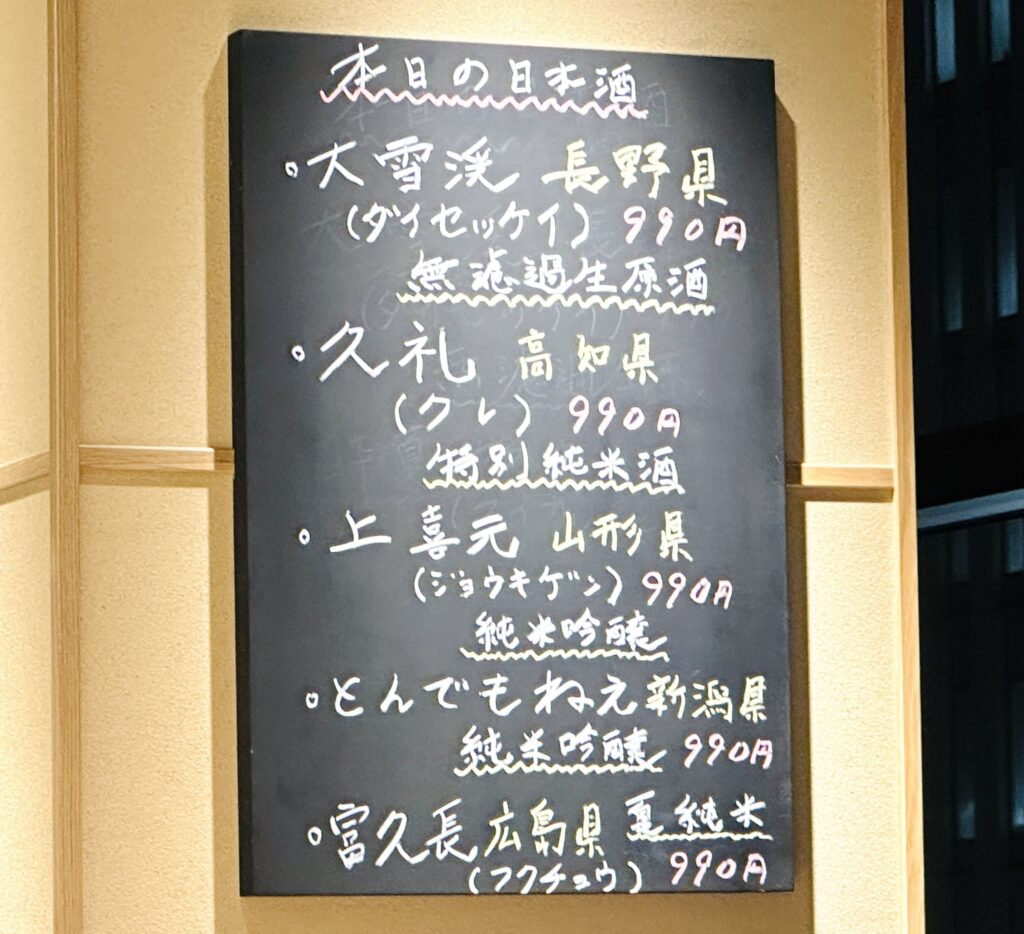 本日の日本酒
・大雪渓 長野県
(ダイセッケイ) 990円
無濾過生原酒
・久礼 高知県
(クレ) 990円
特別純米酒
・上喜元 山形県
(ジョウキゲン) 990円
純米吟醸
・とんでもねえ 新潟県
純米吟醸 990円
・富久長 広島県 夏純米
(フクチョウ) 990円